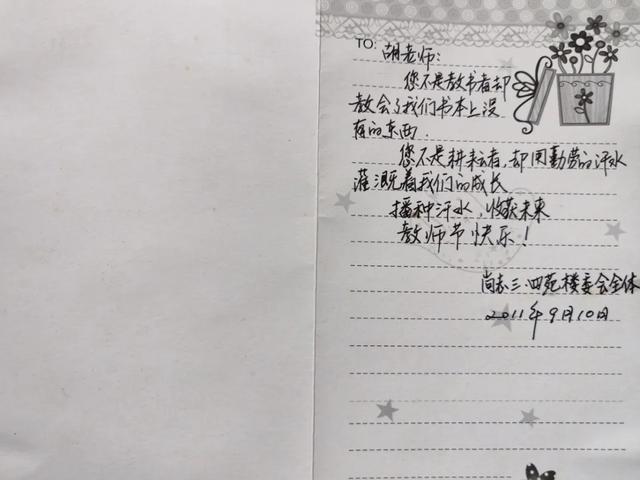 TO: 胡老师:
您不是教书者却
教会了我们书本上没
有的东西.
您不是耕耘者,却用勤劳的汗水
灌溉着我们的成长
播种汗水,收获未来
教师节快乐!
尚志三·四苑楼委会全体
2011年9月10日